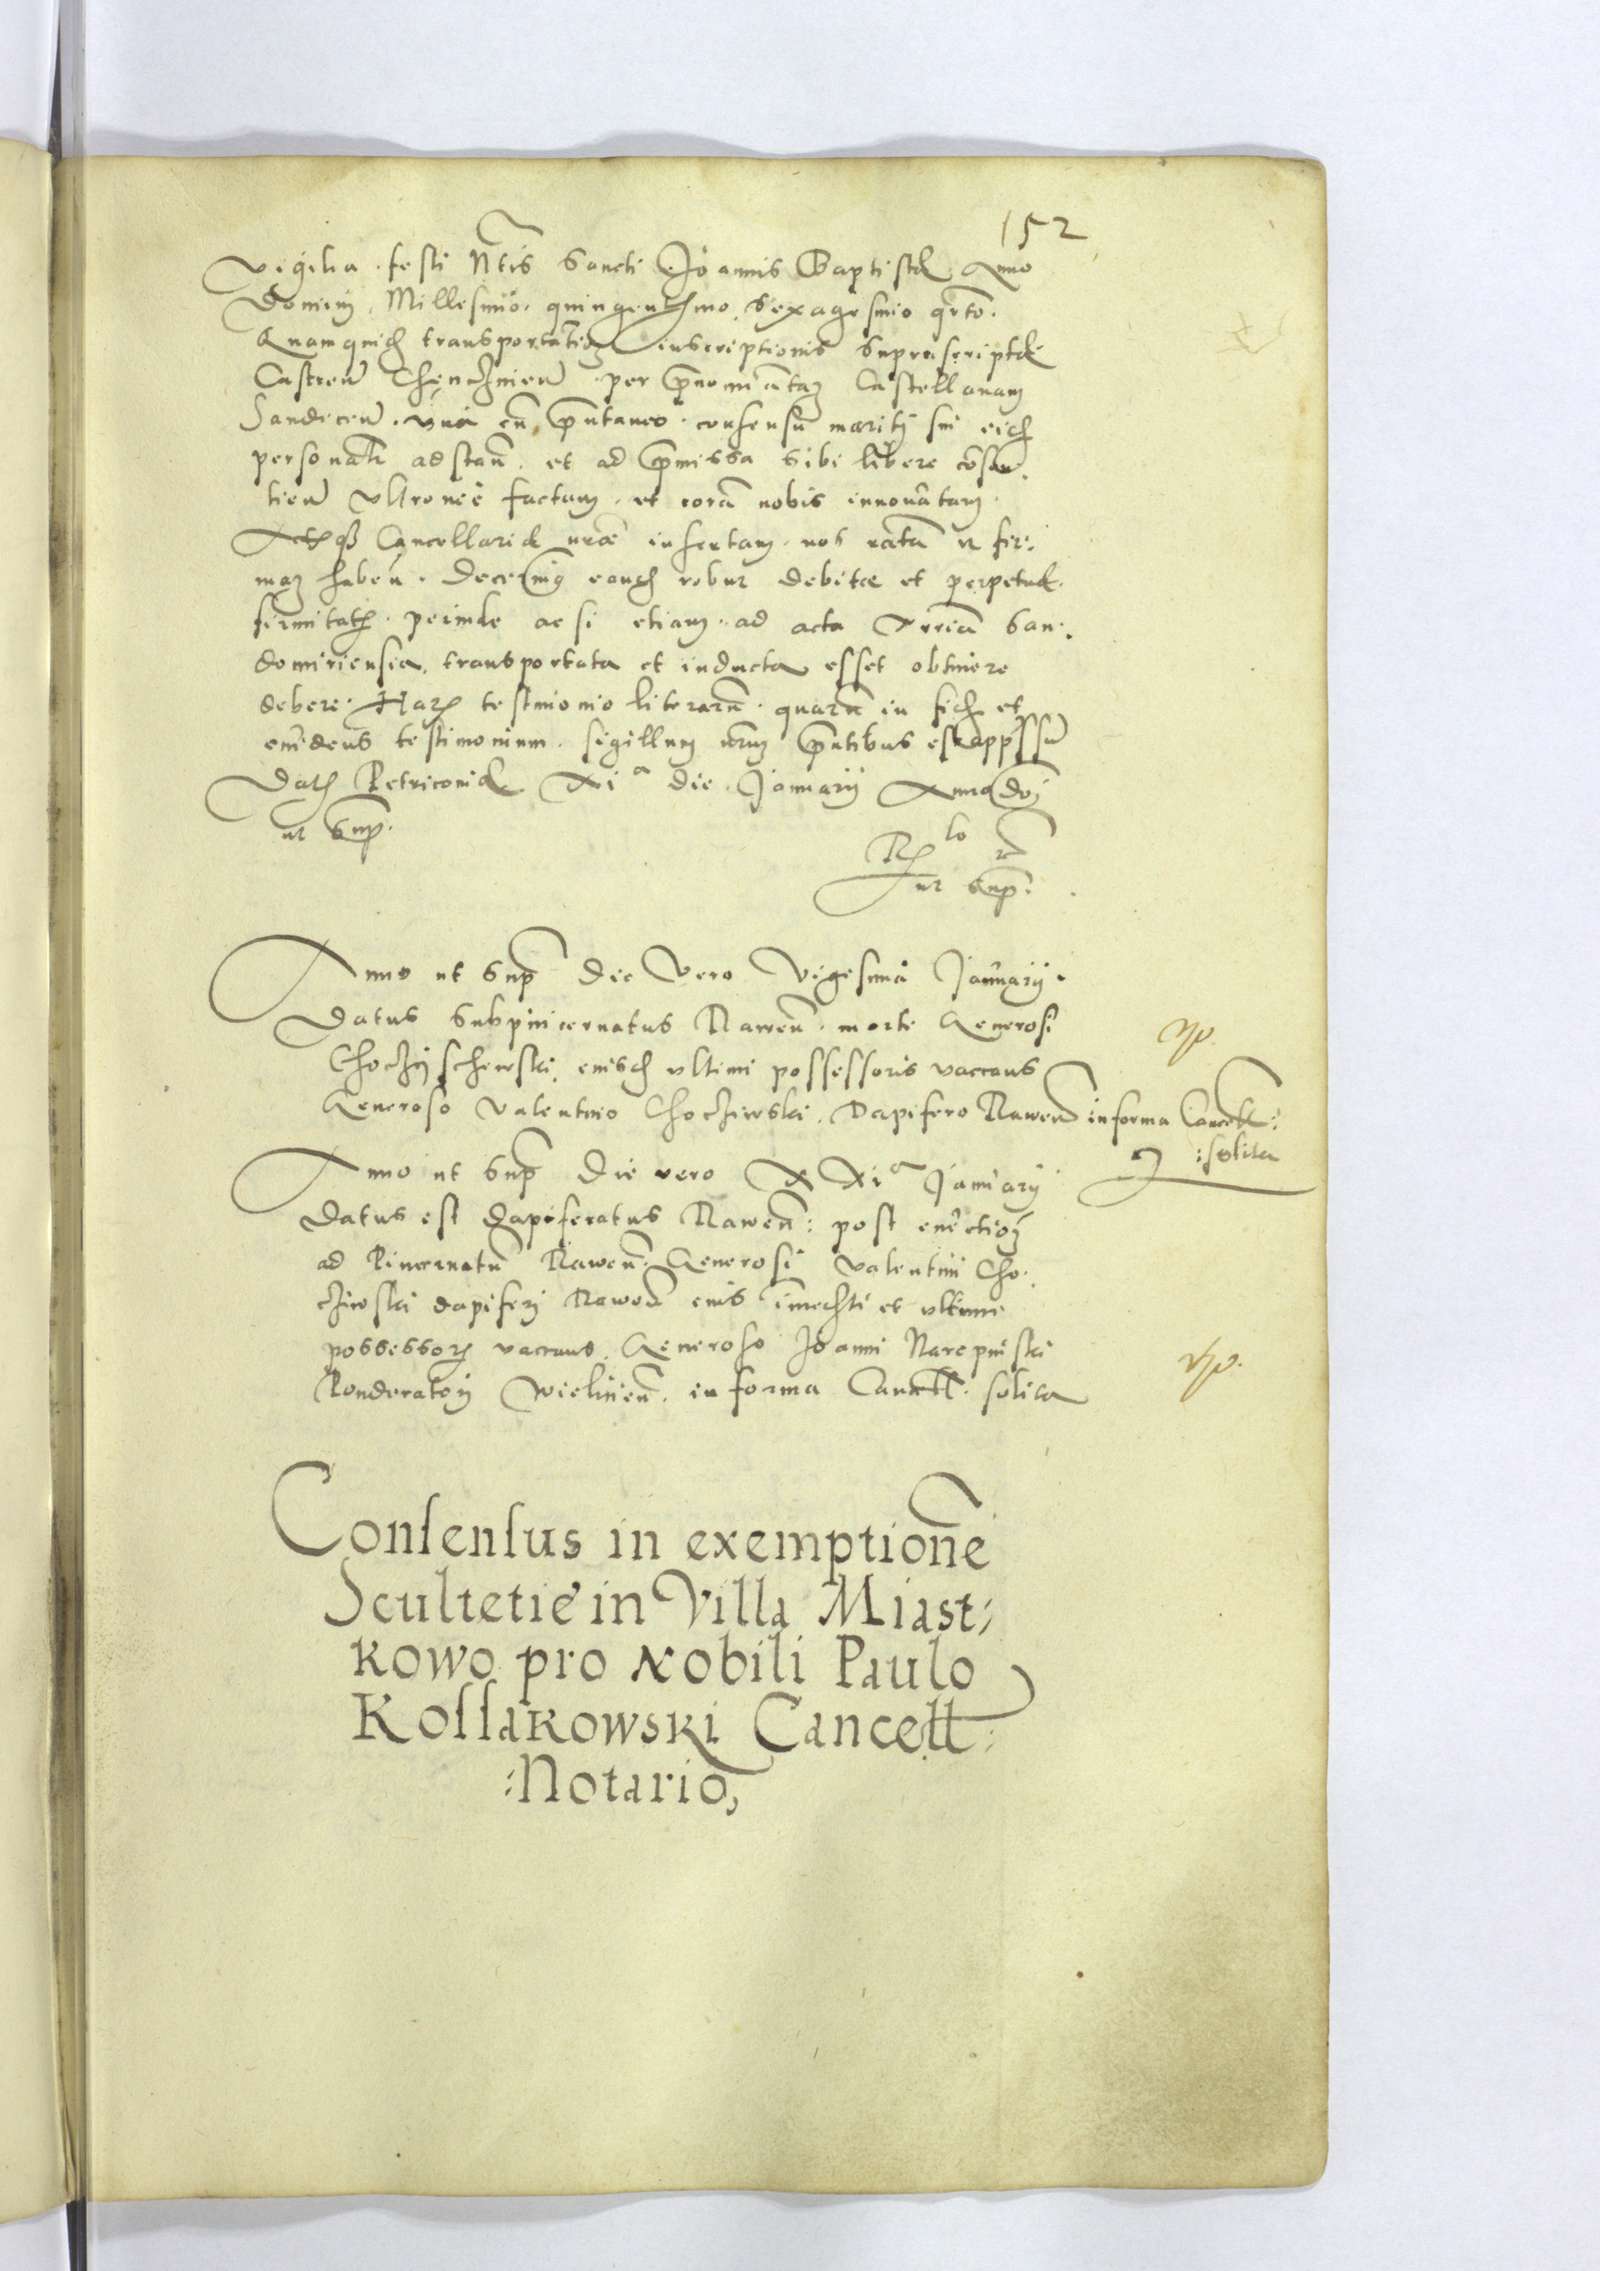 152
vigilia festi Ntis Sancti Joannis Baptistae Anno
Domini Millesimo quingentesimo sexagesimo qrto.
Quamquid transportationem inscriptionis suprascriptae
Castren Chenczinien per pnominatam Castellanam
Sandecen. una cu sponteaneo consensu mariti sui eid
personalr adstan. et ad pmissa sibi libere consen
tien ultronee factam et cora nobis innovatam
Actisqz Cancellariae nrae insertam nos ratam et fir
mam haben. Decernimq eandem robur debitae et perpetuae
firmitatis perinde ac si etiam ad acta Terria San
domiriensia transportata et inducta esset obtinere
debere. Harz testimonio literarum quarum in fidem et
evidens testimonium sigillum nrum pntibus est appssu
Datz Petricoviae XI a die Januarii Anno Doi
ut sup.
Rlo
ut sup.
Anno ut sup Die vero vigesima Januarii.
Datus subpincernatus Rawen. morte Generosi
eiusd ultimi possessoris vacans
Generoso Valentino Choczewski Dapifero Rawen in forma Cancell:
:solita
Anno ut sup Die vero XXI a Januarii
Datus est dapiferatus Rawen: post evectioz
ad Pincernatu Rawen Generosi Valentini Cho
czewski dapiferi Rawen eius immediti et ultimi
possessorz vacans. Generoso Joanni Narepinski
Ponderatori Wielicien. in forma Cancell. solita
Consensus in exemptione
Scultetie in Villa Miast
kowo pro Nobili Paulo
Kossakowski Cancell:
:Notario,